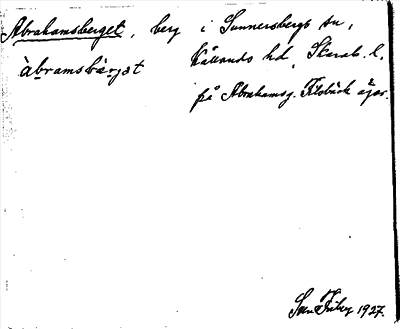 Abrahamsberget, berg i Sunnersbergs sn,
àbramsbärjət Kållands hd, Skarab. l.
på Abrahamsg. Filsbäck ägor.
Sven Fribg 1927.